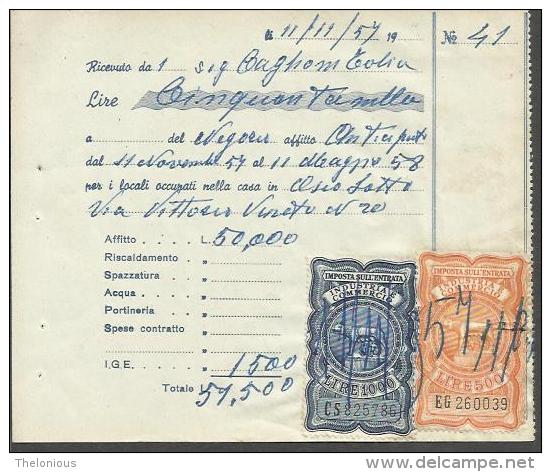 li 11/11/57 19 № 41
Ricevuto da l sig Caghoni Tolia
Lire Cinquantamilla
a del Negozio affitto Anticipato
dal 11 Novembre 57 al 11 Maggio 58
per i locali occupati nella casa in Osio Sotto
Via Vittorio Veneto N 20
Affitto . . . . . L. 50,000
Riscaldamento . »
Spazzatura . . . »
Acqua . . . . . »
Portineria . . . »
Spese contratto »
. . . . . . »
I.G.E. . . . . . » 1500
Totale L. 51,500
IMPOSTA SULL'ENTRATA
INDUSTRIA E COMMERCIO
LIRE 1000
CS 825786
IMPOSTA SULL'ENTRATA
INDUSTRIA E COMMERCIO
LIRE 500
EG 260039
Thelonious
delcampe.net